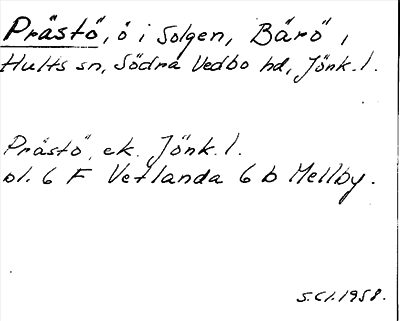 Prästö, ö i Solgen, Bärö,
Hults sn, Södra Vedbo hd, Jönk. l.
Prästö, ek. Jönk. l.
bl. 6 F Vetlanda 6 b Mellby.
S.Cl.1958.